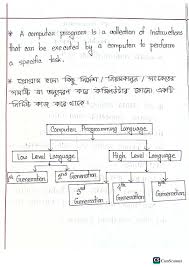 * A computer program is a collection of instructions
that can be executed by a computer to perform
a specific task.
* প্রোগ্রাম হলো কিছু নির্দেশ / নিয়মকানুন /
যা অনুসরণ করে কম্পিউটার কোনো একটি
নির্দিষ্ট কাজ করে থাকে।
Computer Programming Language
Low Level Language High Level Language
1st Generation 2nd Generation 3rd Generation 4th Generation 5th Generation
CamScanner